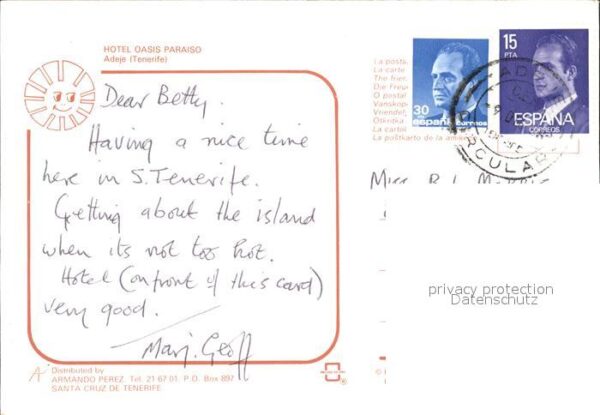 HOTEL OASIS PARAISO
Adeje (Tenerife)
Dear Betty.
Having a nice time
here in S. Tenerife.
Getting about the island
when its not too hot.
Hotel (on front of this card)
very good.
Marj. Geoff
Distributed by
ARMANDO PEREZ. Tel. 21 67 01 P.O. Box 897
SANTA CRUZ DE TENERIFE
La poste
La carte
The frien
Die Freu
O postal
Vanskop
Vriendel
La carte
La poštkarto de la amik
30
España
correos
15
PTA
ESPAÑA
CORREOS
Miss B.
privacy protection
Datenschutz